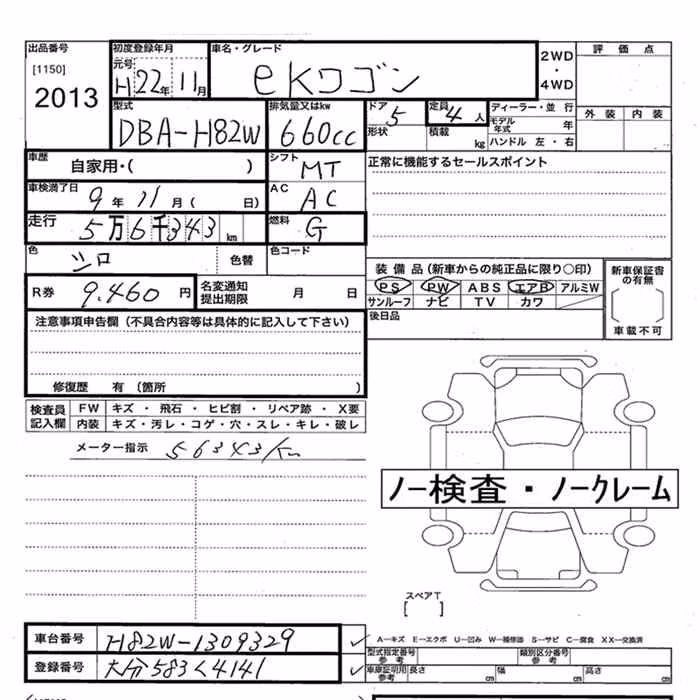 出品番号
[1150]
2013
初度登録年月
元号
H22年11月
車名・グレード
eKワゴン
2WD
・
4WD
評価点
外装 内装
型式
DBA-H82W
排気量又はkw
660cc
ドア 5
形状
定員 4人
積載 kg
ディーラー・並行
モデル年式 年
ハンドル 左・右
車歴
自家用・( )
シフト MT
正常に機能するセールスポイント
車検満了日
9年11月( 日)
AC AC
走行 5万6千343km
燃料 G
色 シロ 色替
色コード
R券 9.460円
名変通知
提出期限 月 日
装備品(新車からの純正品に限り○印)
PS PW ABS エアB アルミW
サンルーフ ナビ TV カワ
後日品
新車保証書
の有無
車載不可
注意事項申告欄(不具合内容等は具体的に記入して下さい)
修復歴 有(箇所 )
検査員
記入欄
FW キズ・飛石・ヒビ割・リペア跡・X要
内装 キズ・汚レ・コゲ・穴・スレ・キレ・破レ
メーター指示 56343km
ノー検査・ノークレーム
スペアT
[ ]
車台番号 H82W-1309329
登録番号 大分583く4141
A―キズ E―エクボ U―凹み W―補修跡 S―サビ C―腐食 XX―交換済
型式指定番号
参考
類別区分番号
参考
車庫証明用
参考
長さ cm 幅 cm 高さ cm